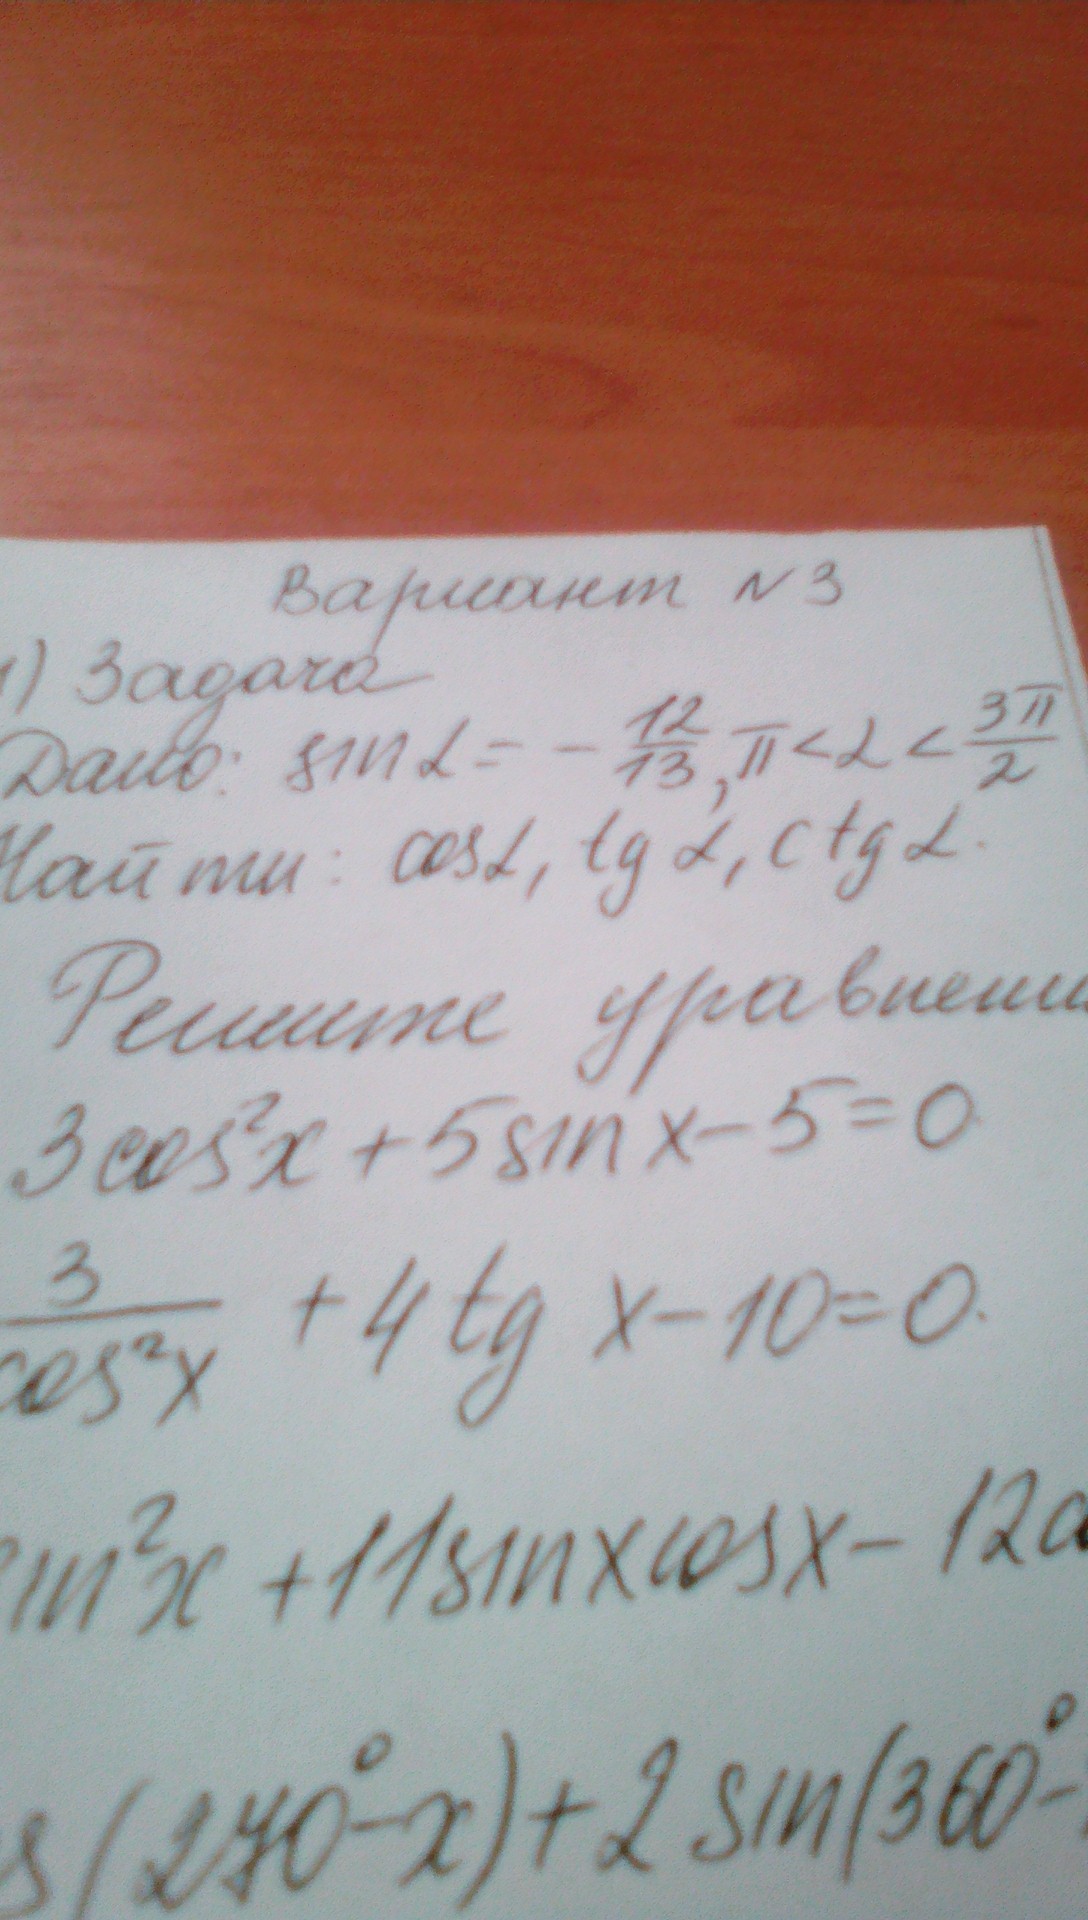 Вариант №3
1) Задача
Дано: sin α = - 12/13, π < α < 3π/2
Найти: cos α, tg α, ctg α.
Решите уравнени
3 cos²x + 5 sin x - 5 = 0
3/cos²x + 4 tg x - 10 = 0.
in²x + 11 sin x cos x - 12 c
s (270° - x) + 2 sin (360° -